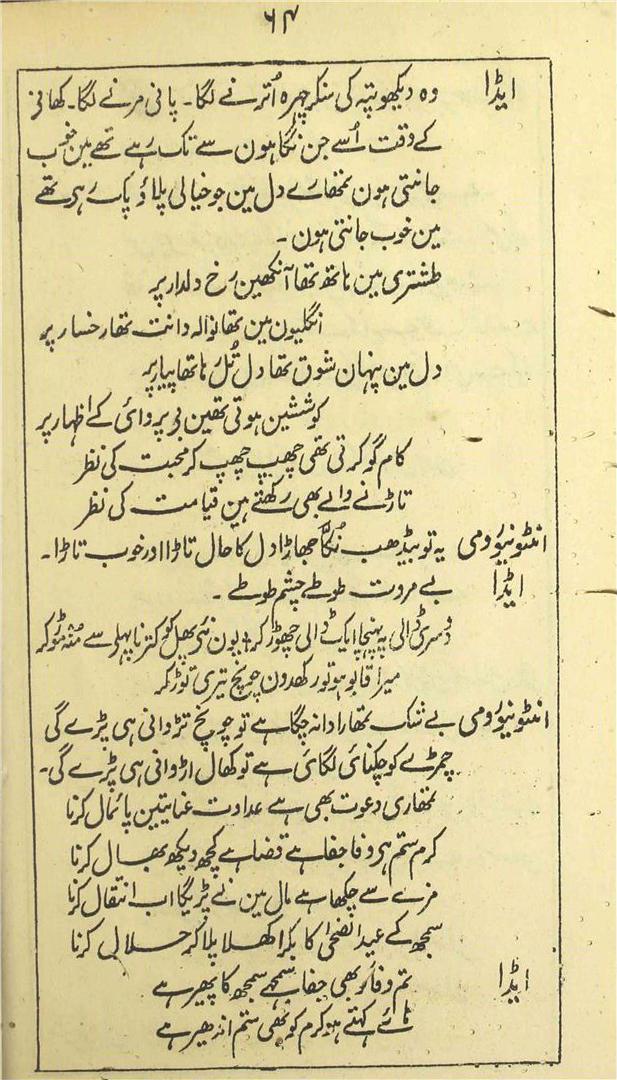 ۶۴
ایڈا وہ دیکھو پتہ کی سنکر چہرہ اُترنے لگا۔ پانی مرنے لگا۔ کھانے
کے وقت اُسے جن نگاہون سے تک رہے تھے مین خوب
جانتی ہون تمھارے دل مین جو خیالی پلاؤ پک رہی تھے
مین خوب جانتی ہون ۔
طشتری مین ہاتھ تھا آنکھین رخ دلدار پر
انگلیون مین تھا نوالہ دانت تھا رخسار پر
دل مین پنہان شوق تھا دل تُل رہا تھا پیار پر
کوششین ہوتی تھین بی پروائی کے اظہار پر
کام گو کرتی تھی چھپ چھپ کر محبت کی نظر
تاڑنے والے بھی رکھتے ہین قیامت کی نظر
انٹونیؤرومی یہ تو بیڈھب تُکّا جھاڑا دل کا حال تاڑا اور خوب تاڑا۔
ایڈا بے مروت طوطے چشم طوطے ۔
دُوسری ڈالی پہ پہنچا ایک ڈالی چھوڑ کر یون نئی پھل کو کترنا پہلو سے منہ موڑ کر
میرا قابو ہو تو رکھدون چونچ تیری توڑ کر
انٹونیؤرومی بے شک تمھارا دانہ چگا ہے تو چونچ تڑوانی ہی پڑے گی
چمڑے کو چکنائی لگائی ہے تو کھال اڑوانی ہی پڑے گی۔
تمھاری دعوت بھی ہے عداوت عنایتین پائمال کرنا
کرم ستم ہی وفا جفا ہے قضا ہے کچھ دیکھ بھال کرنا
مزے سے چکھا ہے مال مین نے پڑیگا اب انتقال کرنا
سمجھ کے عید الضحیٰ کا بکرا کھلا پلا کر حلال کرنا
ایڈا تم وفا کو بھی جفا سمجھے سمجھ کا پھیر ہے
ہائے کہتے ہو کرم کو بھی ستم اندھیر ہے